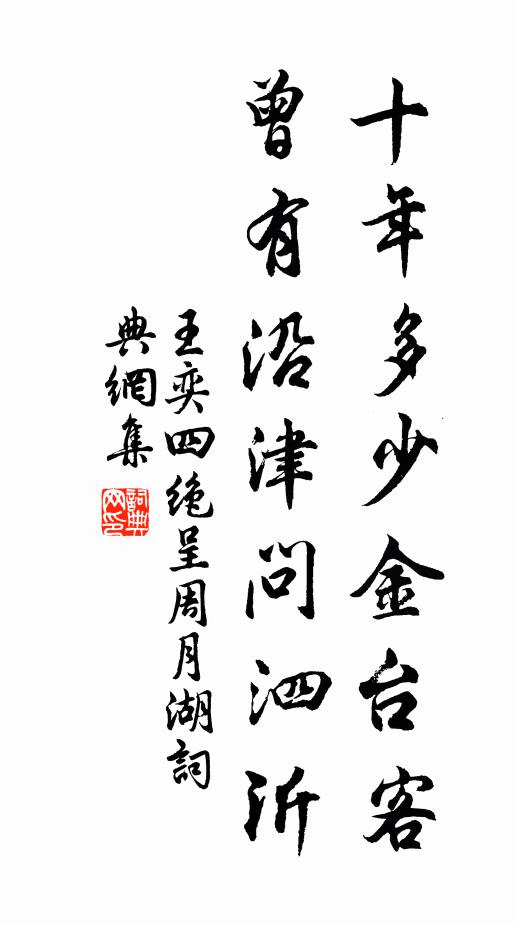 十年多少金台客
曾有沿津問泗沂
王奕四绝呈周月湖詞
典網集
詞典網印